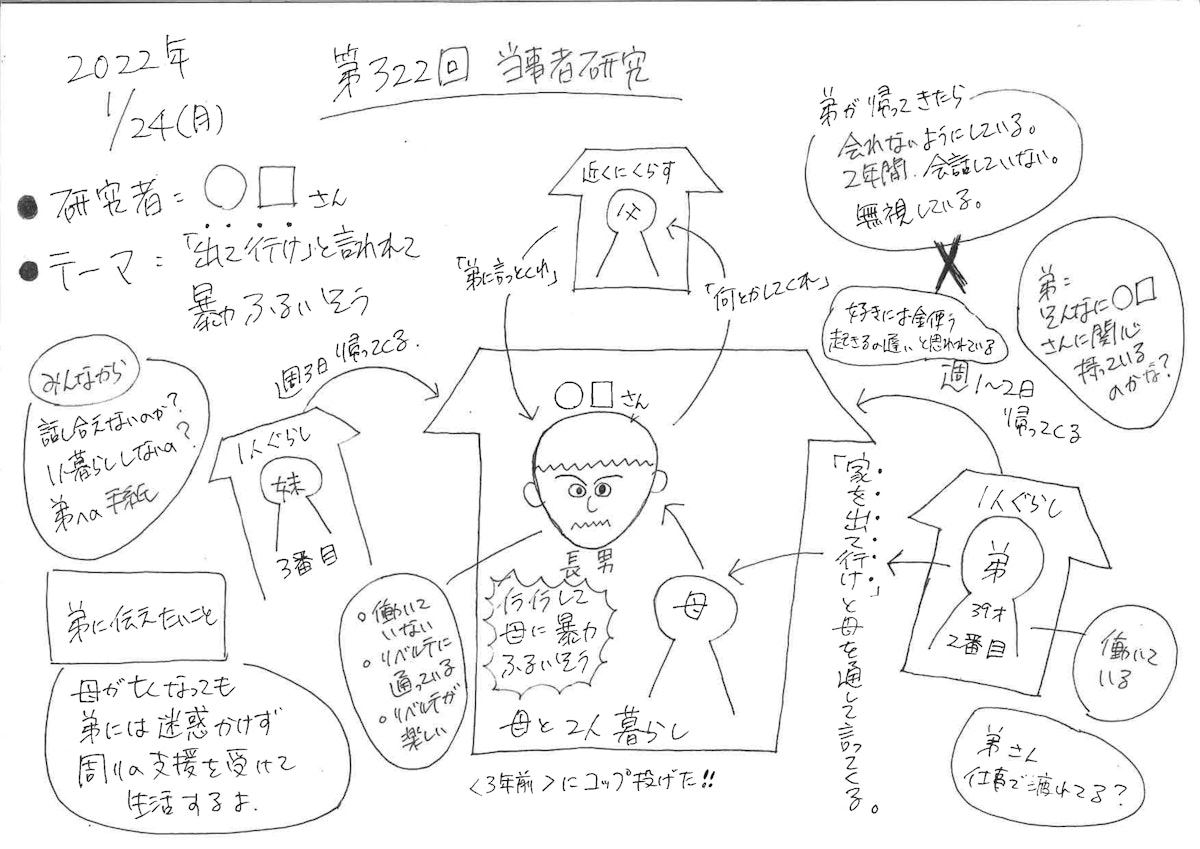 2022年
1/24(月)
第322回 当事者研究
● 研究者 = ○□さん
● テーマ : 「出て行け」と言われて
暴力ふるいそう
近くにくらす
父
「弟に言っとくわ」
「何とかしてくれ」
弟が帰ってきたら
会れないようにしている。
2年間、会話していない。
無視している。
好きにお金使う
起きるの遅いと思われている
弟:
そんなに○□
さんに関心
持っている
のかな?
週1〜2日
帰ってくる
みんなから
話し合えないのか?
1人暮らししないの?
弟への手紙
週3日帰ってくる.
1人ぐらし
妹
3番目
○□さん
長男
イライラして
母に暴力
ふるいそう
母
母と2人暮らし
<3年前>にコップ投げた!!
。働いて
いない
。リベルテに
通っている
。リベルテが
楽しい
「家を出て行け」と母を通して言ってくる。
1人ぐらし
弟
39才
2番目
働いて
いる
弟さん
仕事で疲れてる?
弟に伝えたいこと
母が亡くなっても
弟には迷惑かけず
周りの支援を受けて
生活するよ.